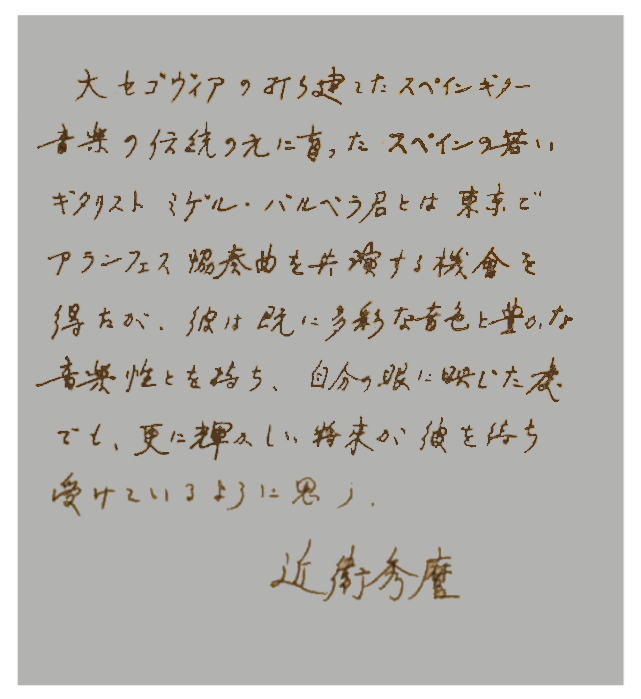 大セゴヴィアの打ち建てたスペインギター
音楽の伝統の元に育ったスペインの若い
ギタリスト ミゲル・バルベラ君とは東京で
アランフェス協奏曲を共演する機會を
得たが、彼は既に多彩な音色と豊かな
音楽性とを持ち、自分の眼に映じた
でも、更に輝かしい将来が彼を待ち
受けているように思う.
近衛秀麿